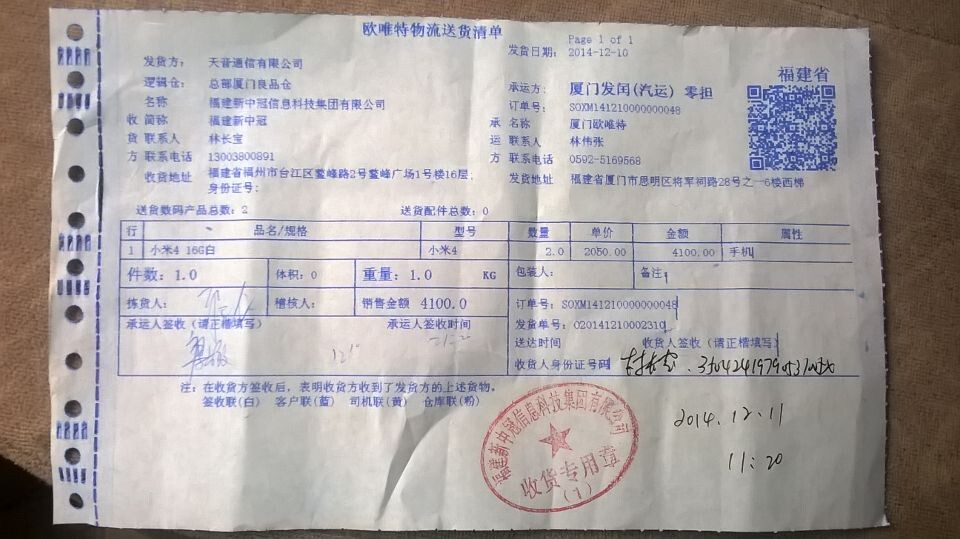 欧唯特物流送货清单
Page 1 of 1
发货日期: 2014-12-10
发货方: 天音通信有限公司
逻辑仓: 总部厦门良品仓
承运方: 厦门发闰(汽运) 零担
福建省
名称 福建新中冠信息科技集团有限公司
订单号: SOXM141210000000048
收 简称 福建新中冠
承 名称 厦门欧唯特
货 联系人 林长宝
运 联系人 林伟张
方 联系电话 13003800891
方 联系电话 0592-5169568
收货地址 福建省福州市台江区鳌峰路2号鳌峰广场1号楼16层;
身份证号:
发货地址 福建省厦门市思明区将军祠路28号之一6楼西梯
送货数码产品总数: 2 送货配件总数: 0
行 品名/规格 型号 数量 单价 金额 属性
1 小米4 16G白 小米4 2.0 2050.00 4100.00 手机
件数: 1.0 体积: 0 重量: 1.0 KG 包装人: 备注
拣货人: 稽核人: 销售金额 4100.0
订单号: SOXM141210000000048
发货单号: O20141210002310
承运人签收 (请正楷填写) 承运人签收时间
送达时间 收货人签收 (请正楷填写)
收货人身份证号码
注: 在收货方签收后, 表明收货方收到了发货方的上述货物。
签收联(白) 客户联(蓝) 司机联(黄) 仓库联(粉)
福建新中冠信息科技集团有限公司
收货专用章
(1)
2014.12.11
11:20